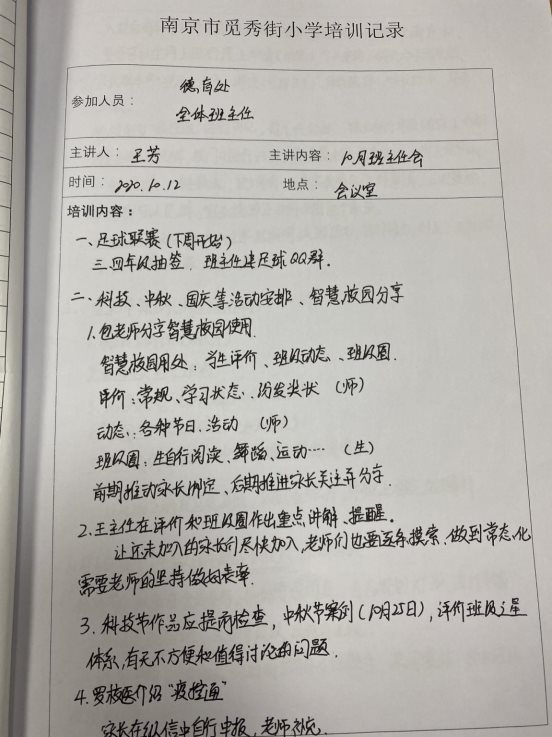 南京市觅秀街小学培训记录
参加人员： 德育处
全体班主任
主讲人： 王芳 主讲内容： 10月班主任会
时间： 2020.10.12 地点： 会议室
培训内容：
一、足球联赛（下周开始）
三四年级抽签 班主任建足球QQ群.
二、科技、中秋、国庆等活动安排、智慧校园分享
1.包老师分享智慧校园使用.
智慧校园用处：学生评价、班级动态、班级圈.
评价：常规、学习状态、均发奖状（师）
动态：各种节日、活动（师）
班级圈：生自行阅读、舞蹈、运动…（生）
前期推动家长绑定、后期推进家长关注并分享.
2.王主任在评价和班级圈作出重点讲解、提醒。
让还未加入的家长们尽快加入,老师们也要逐条摸索、做到常态化
需要老师的坚持做好表率.
3.科技节作品应提前检查，中秋节案例（10月25日），评价班级之星
体系,有无不方便和值得讨论的问题.
4.罗校医介绍“疫控通”
家长在微信中自行申报，老师补充.